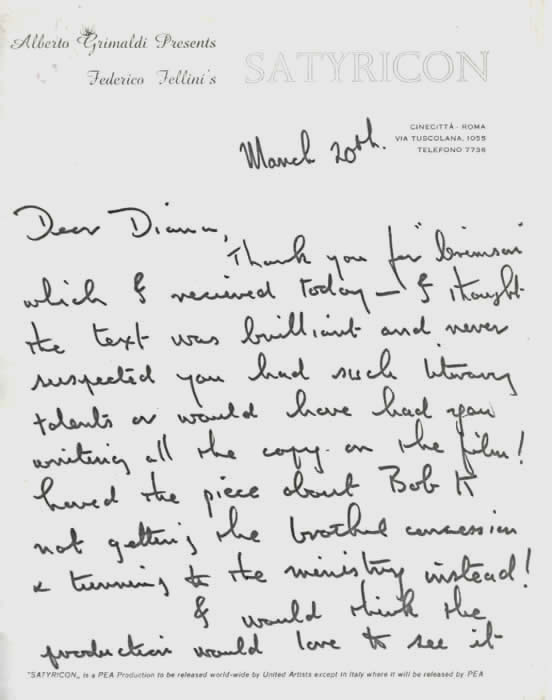 Alberto Grimaldi Presents
Federico Fellini's
SATYRICON
CINECITTÀ - ROMA
VIA TUSCOLANA, 1055
TELEFONO 7736
March 20th.
Dear Diana,
Thank you for "Crimson"
which I recieved today — I thought
the text was brilliant and never
suspected you had such literary
talents or would have had you
writing all the copy on the film!
Loved the piece about Bob K
not getting the brothel concession
& turning to the ministry instead!
I would think the
production would love to see it
"SATYRICON„ is a PEA Production to be released world-wide by United Artists except in Italy where it will be released by PEA